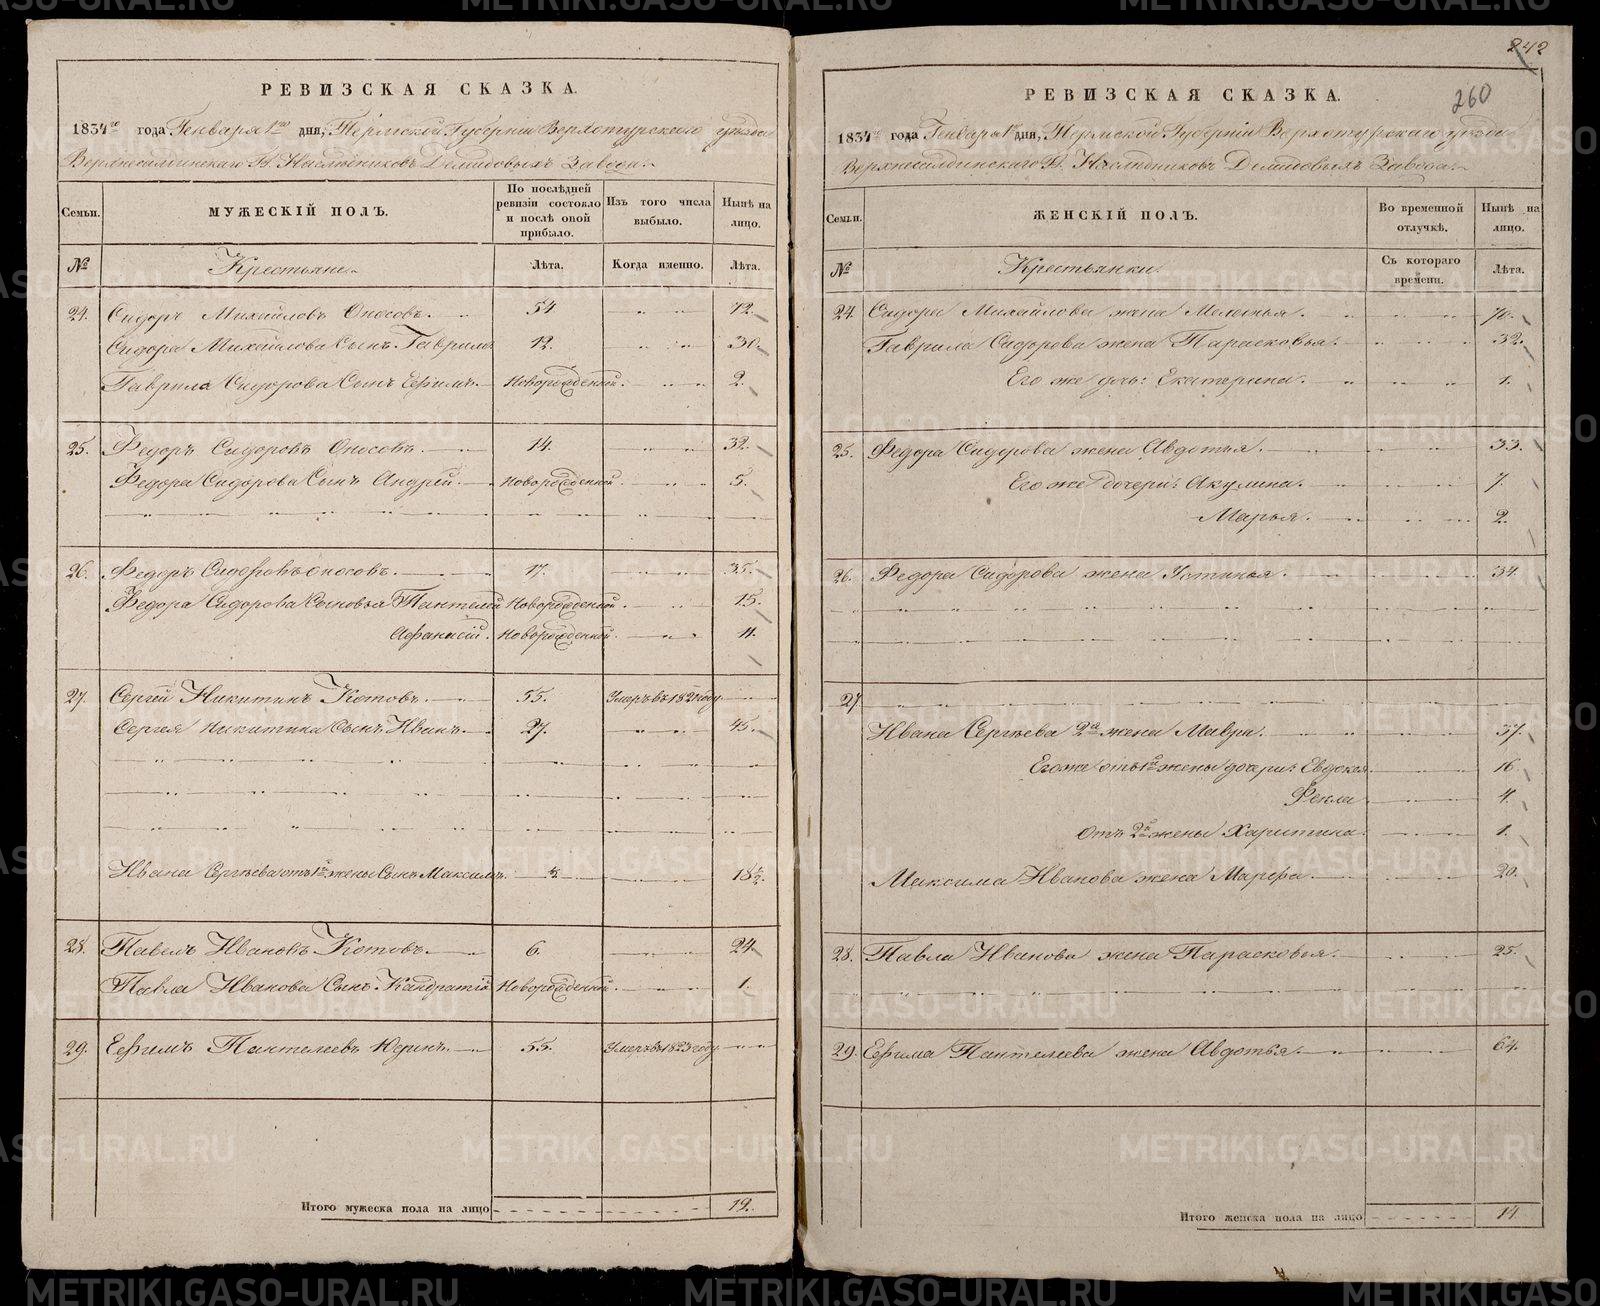 РЕВИЗСКАЯ СКАЗКА.
1834го года Генваря 1го дня, Пермской Губернии Верхотурскаго уезда
Верхнесалдинскаго Гг. Наследниковъ Демидовыхъ Завода.
Семьи.
МУЖЕСКІЙ ПОЛЪ.
По послѣдней ревизіи состояло и послѣ оной прибыло.
Изъ того числа выбыло.
Нынѣ на лицо.
№
Крестьяне.
Лѣта.
Когда именно.
Лѣта.
24. Сидоръ Михайловъ Оносовъ. 54 72.
Сидора Михайлова Сынъ Гаврила 12. 30.
Гаврила Сидорова Сынъ Ефимъ. Новорожденной. 2.
25. Федоръ Сидоровъ Оносовъ. 14. 32.
Федора Сидорова Сынъ Андрей. Новорожденной. 5.
26. Федоръ Сидоровъ Оносовъ. 17. 35.
Федора Сидорова Сыновья Пантелей Новорожденной. 15.
Афанасій. Новорожденной. 11.
27. Сергей Никитинъ Котовъ. 55. Умеръ в 1821 году
Сергея Никитина Сынъ Иванъ. 27. 45.
Ивана Сергеева отъ 1й жены Сынъ Максимъ. 18½.
28. Павелъ Ивановъ Котовъ. 6. 24
Павла Иванова Сынъ Кандратій Новорожденной. 1.
29. Ефимъ Пантелеевъ Юринъ. 55. Умеръ в 1823 году.
Итого мужеска пола на лицо 12.
242
260
РЕВИЗСКАЯ СКАЗКА.
1834го года Генваря 1го дня, Пермской Губерніи Верхотурскаго уезда
Верхнесалдинскаго Гг. Наследниковъ Демидовыхъ Завода.
Семьи.
ЖЕНСКІЙ ПОЛЪ.
Во временной отлучкѣ.
Нынѣ на лицо.
№
Крестьянки.
Съ котораго времени.
Лѣта.
24. Сидора Михайлова жена Меланья. 70.
Гаврила Сидорова жена Парасковья. 32.
Его же дочь: Екатерина. 1.
25. Федора Сидорова жена Авдотья. 33.
Его же дочери: Акулина. 7.
Марья. 2.
26. Федора Сидорова жена Устинья. 34.
27.
Ивана Сергеева 2я жена Мавра. 37.
Его же отъ 1й жены дочери: Евдокея 16
Фекла 4.
Отъ 2й жены Харитина 1.
Максима Иванова жена Марфа. 20.
28. Павла Иванова жена Парасковья. 25.
29. Ефима Пантелеева жена Авдотья. 64.
Итого женска пола на лицо 14
METRIKI.GASO-URAL.RU